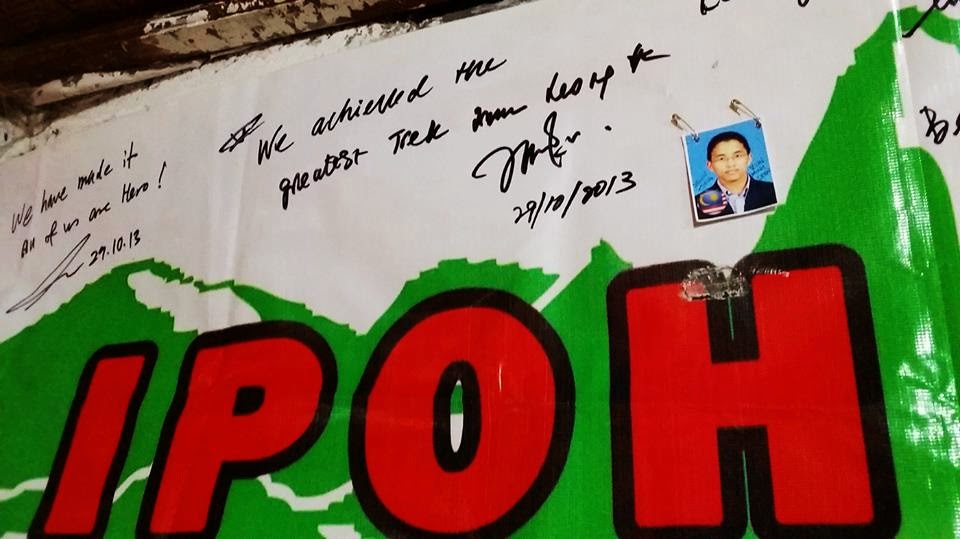 We have made it
All of us are Hero!
29.10.13
We achieved the
greatest Trek
29/10/2013
IPOH